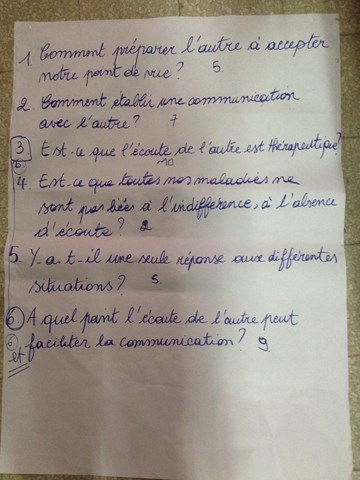 1. Comment préparer l'autre à accepter
notre point de vue ? 5.
2. Comment établir une communication
avec l'autre ? 7
3 Est-ce que l'écoute de l'autre est thérapeutique ?
10
4. Est-ce que toutes nos maladies ne
sont pas liées à l'indifférence, à l'absence
d'écoute ? 2
5. Y. a. t-il une seule réponse aux différentes
situations ? 5.
6 A quel point l'écoute de l'autre peut
et faciliter la communication ? 9